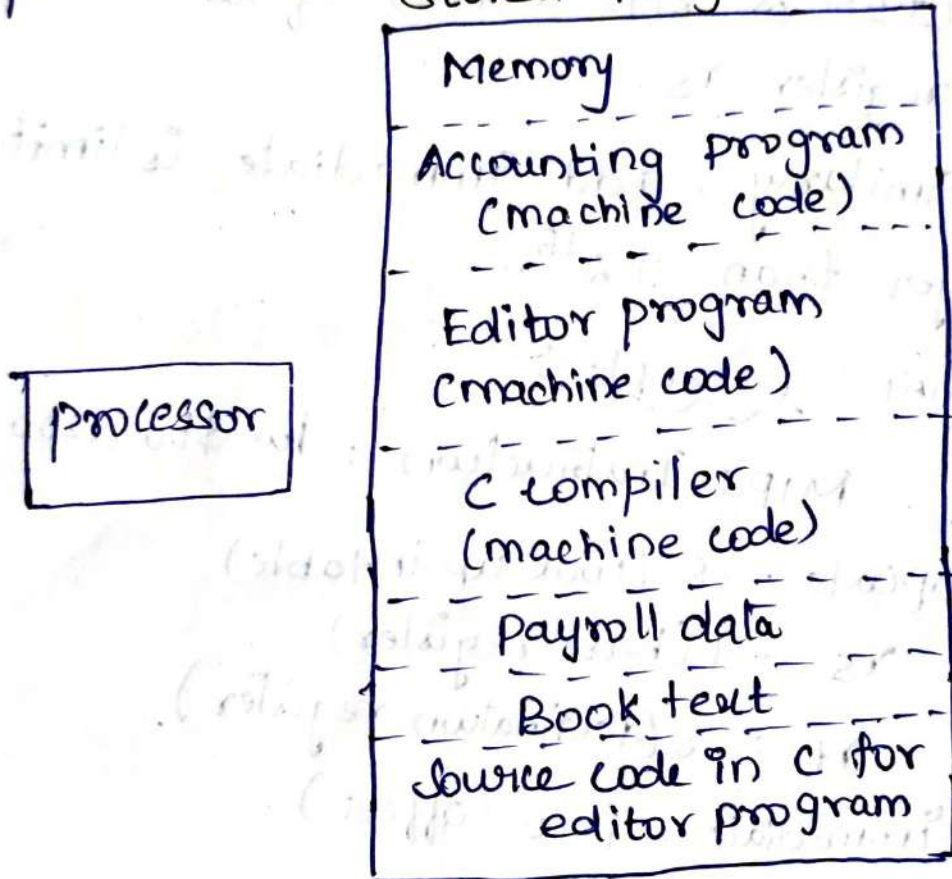 Memory
Accounting program
(machine code)
Editor program
(machine code)
processor
C compiler
(machine code)
payroll data
Book text
Source code in C for
editor program